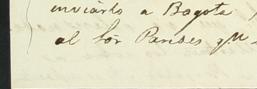 enviarlo a Bogota
al Sõr Paredes qu